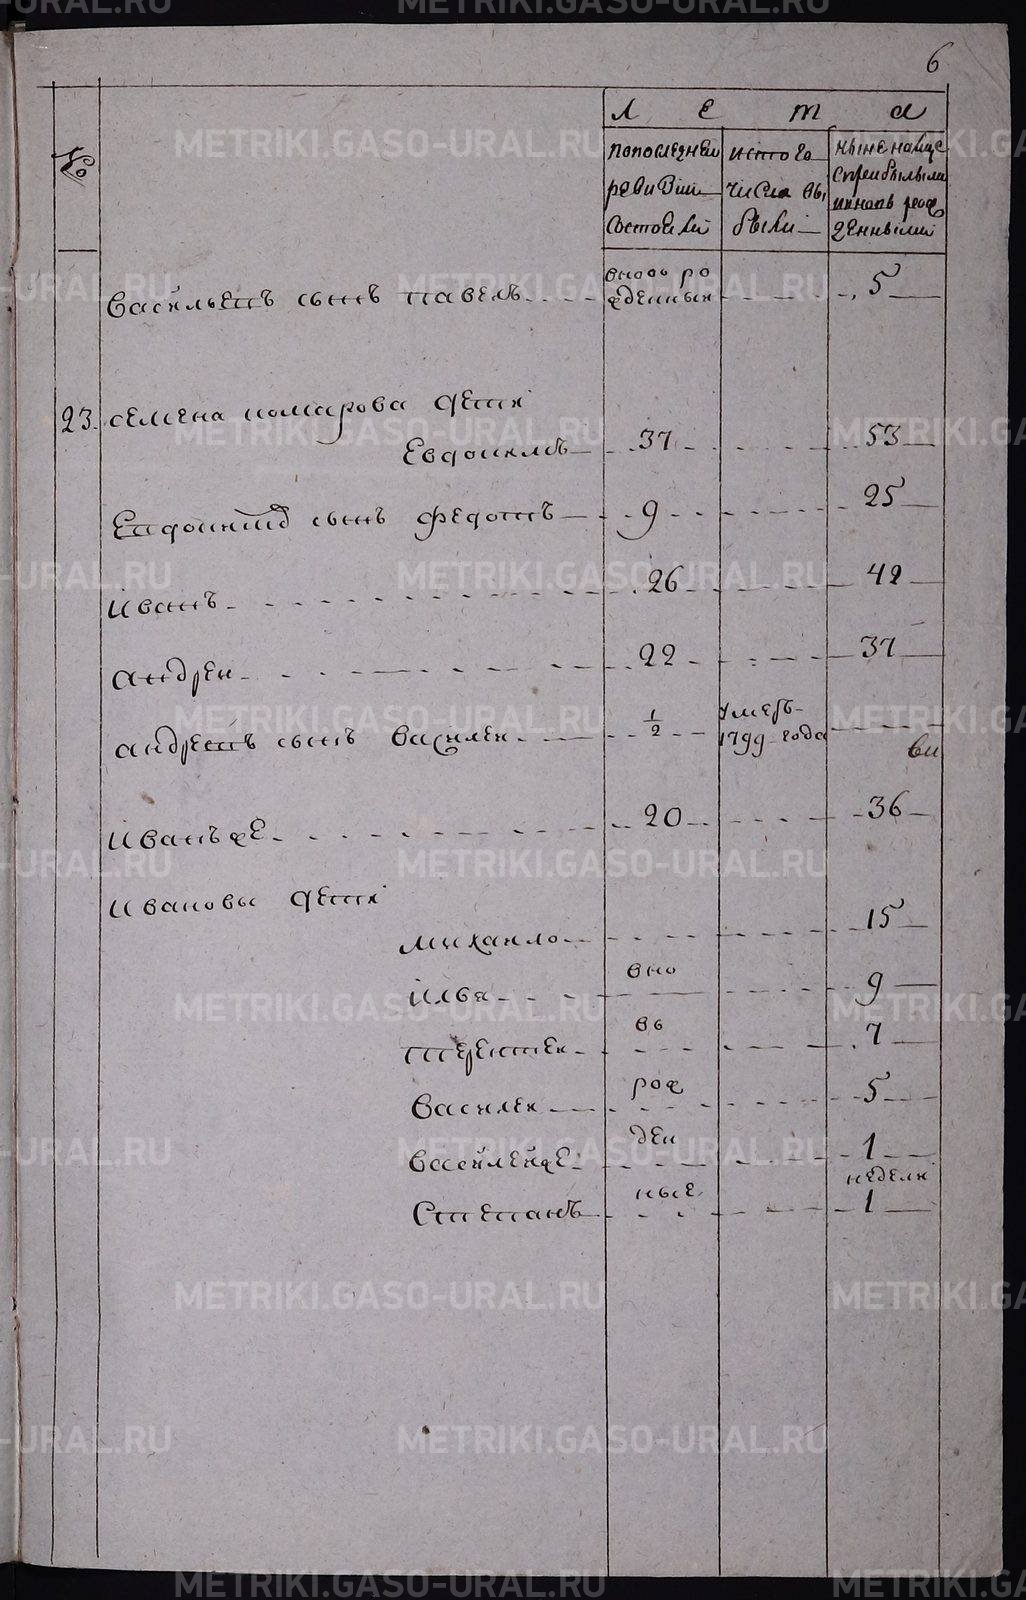 6
№
Л е т а
по последней
ревизии
состояли
ис того
числа вы
были
ныне налице
с прибылыми
и вновь рож
денными
Васильевъ сынъ Павелъ 5
вновь ро
жденный
23. Семена Комарова дети
Евдокимъ 37 53
Евдокимовъ сынъ Федотъ 9 25
Иванъ 26 42
Андреи 22 37
Андреевъ сынъ Василеи 1/2 умеръ
1799 года
Иванъ же 20 36
Ивановы дети
Михаило 15
Илья вно 9
Терентеи вь 7
Василеи рож 5
Василеи же ден 1
недели
Степанъ ные 1
METRIKI.GASO-URAL.RU